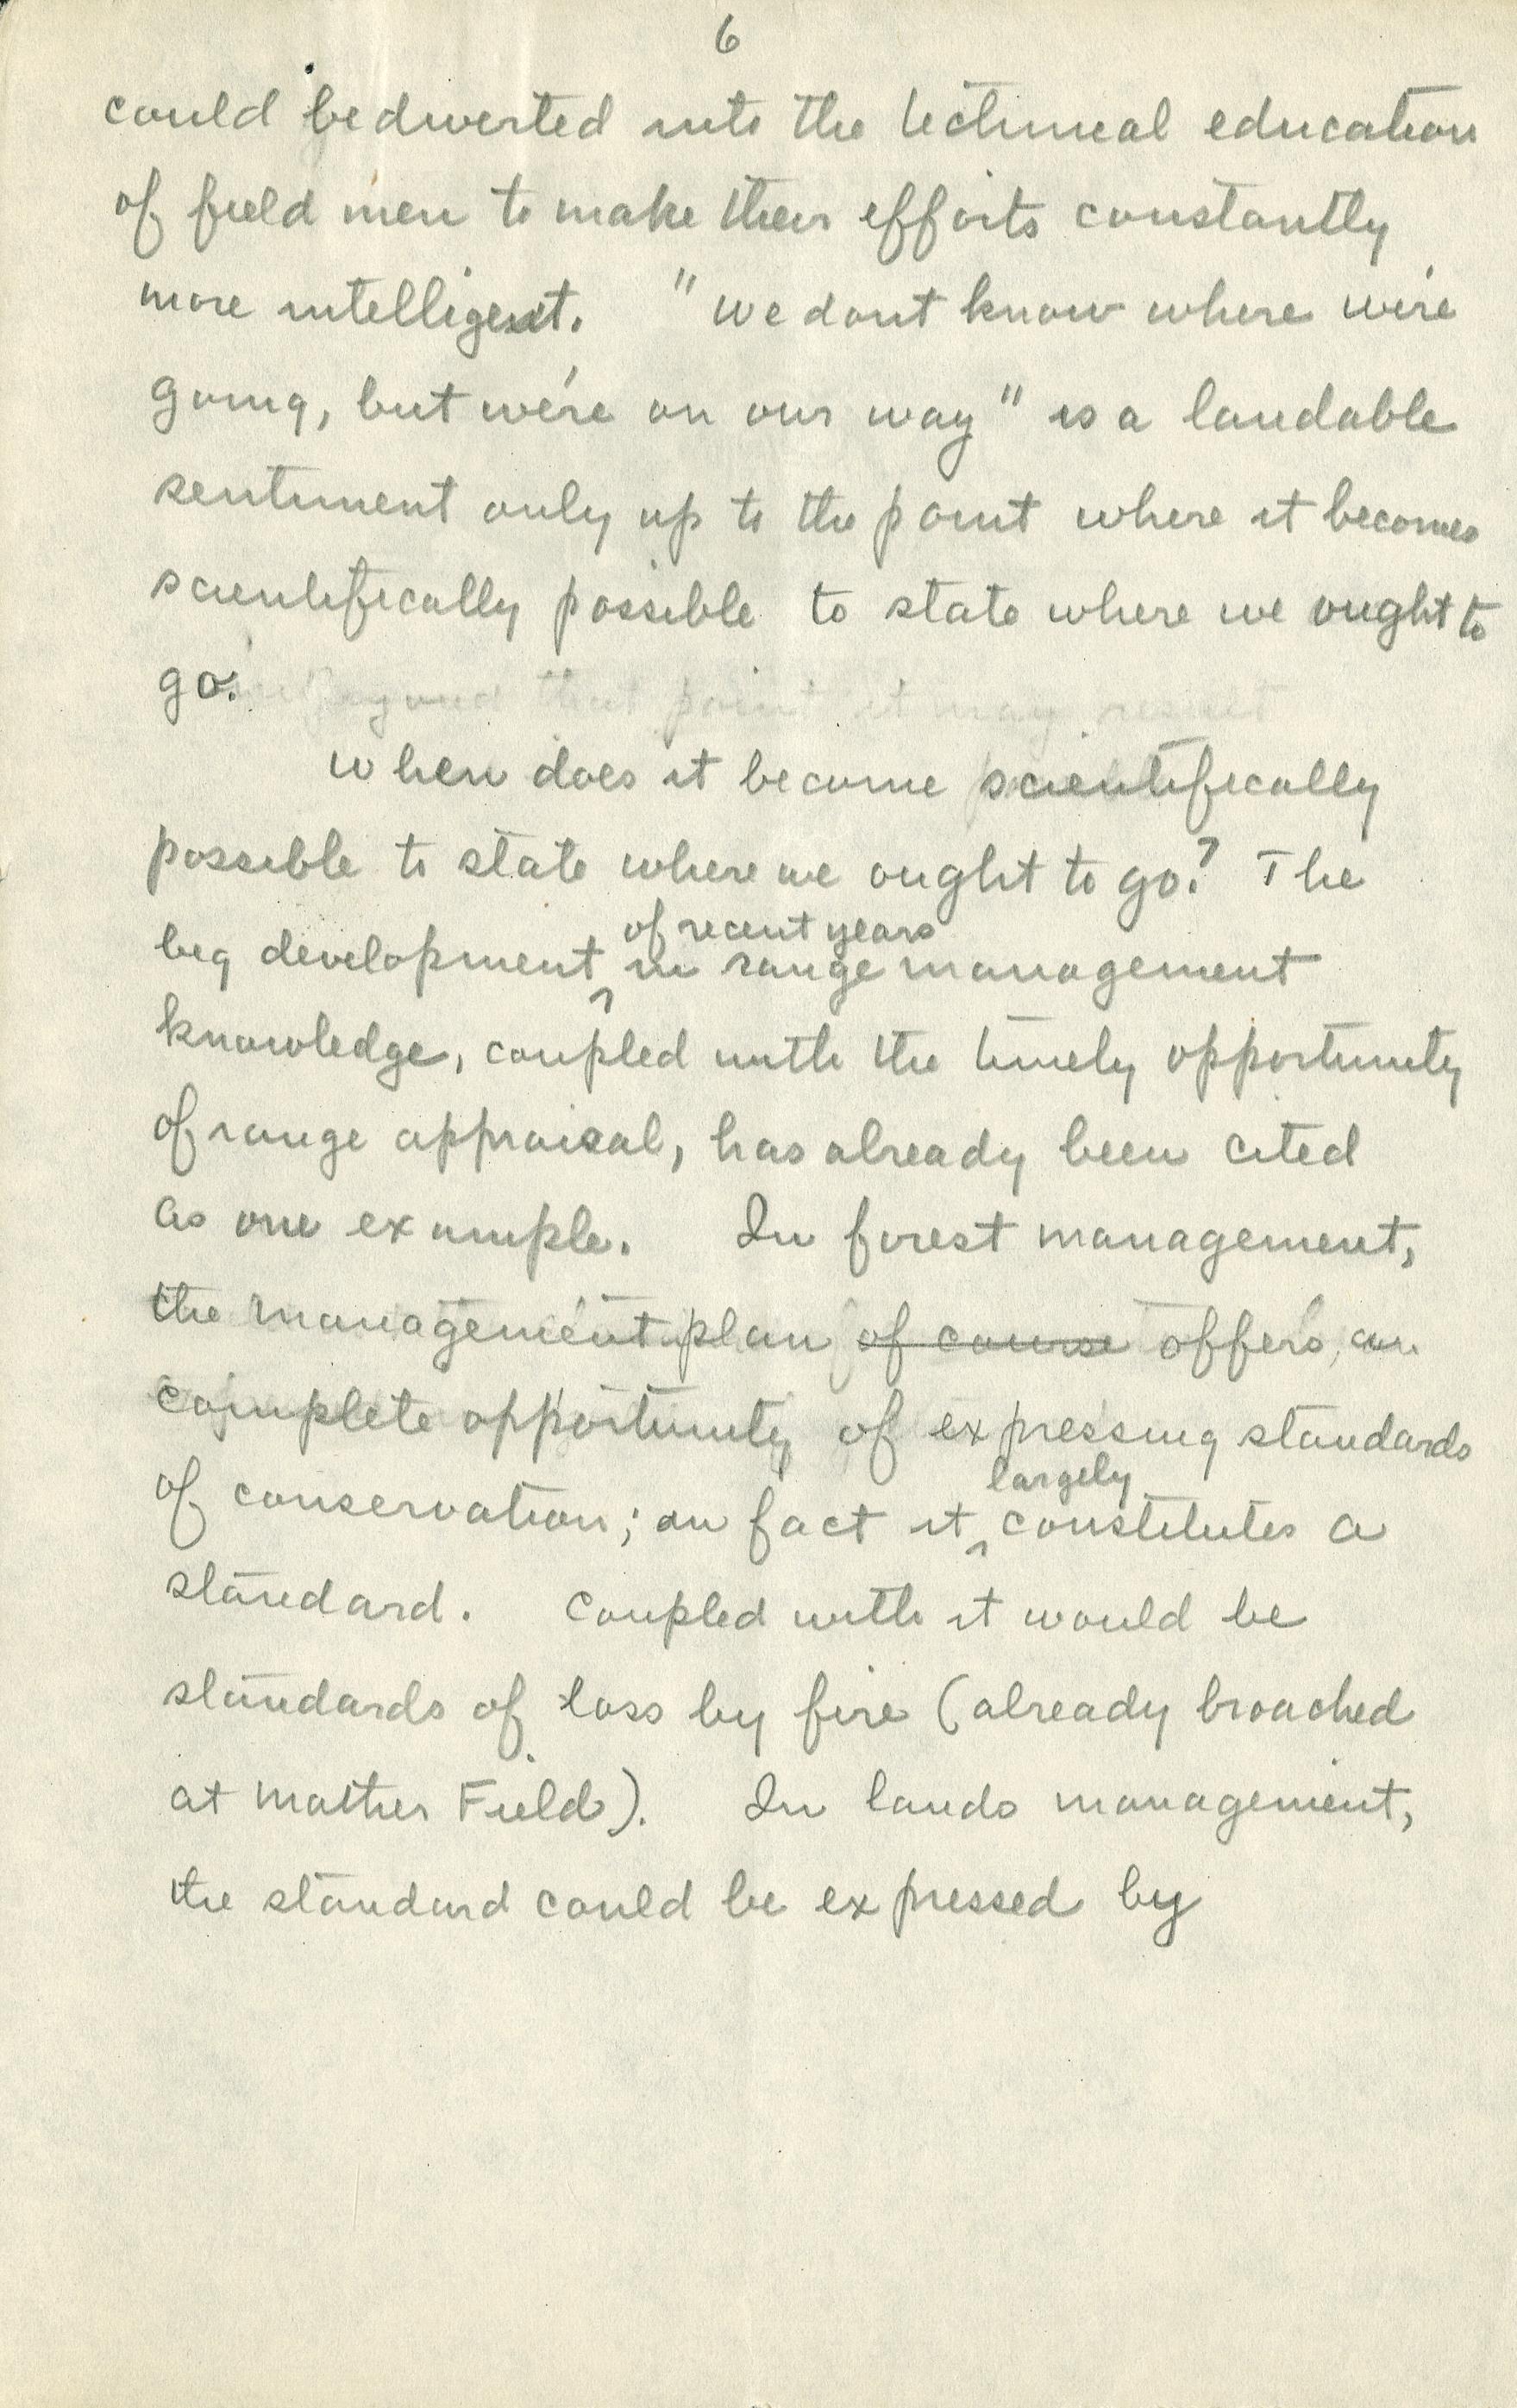 6
could be diverted into the technical education
of field men to make their efforts constantly
more intelligent. "We dont know where we're
going, but we're on our way" is a laudable
sentiment only up to the point where it becomes
scientifically possible to state where we ought to
go.
Beyond that point it may result
When does it become scientifically
possible to state where we ought to go? The
of recent years
big development in range management
knowledge, coupled with the timely opportunity
of range appraisal, has already been cited
as one example. In forest management,
the management plan of course offers, an
complete opportunity of expressing standards
largely
of conservation; in fact it constitutes a
standard. Coupled with it would be
standards of loss by fire (already broached
at Mather Field). In lands management,
the standard could be expressed by